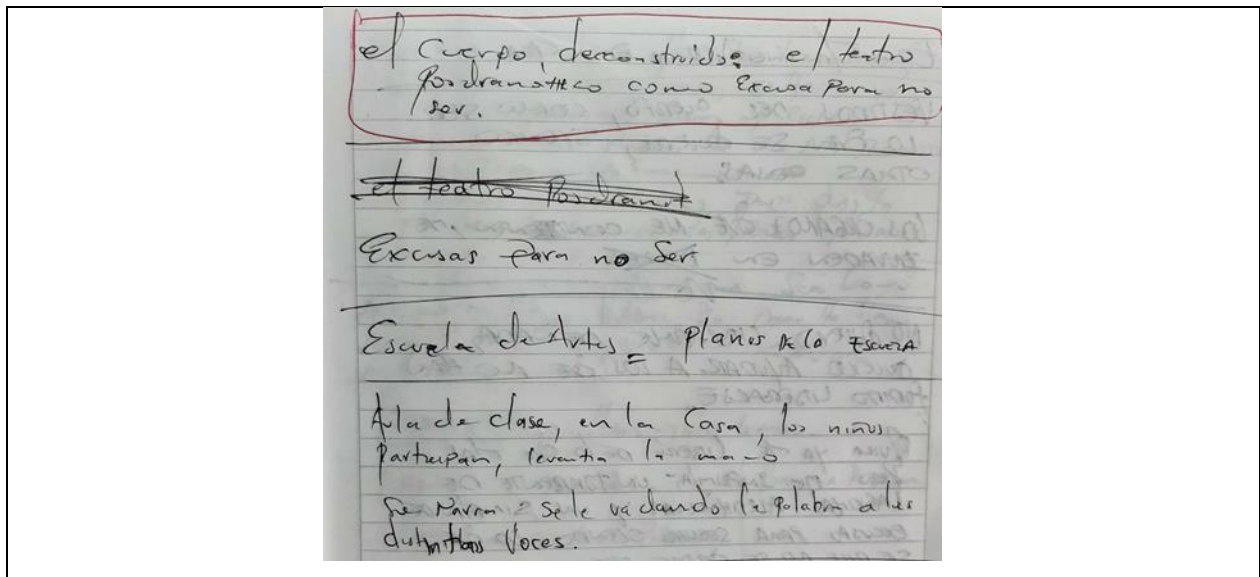 el Cuerpo, deconstruido: el teatro
Posdramático como Excusa Para no
ser.
el teatro Posdramat
Excusas Para no Ser
Escuela de Artes = Planos de la ESCUELA
Aula de clase, en la Casa, los niños
Participan, levantan la mano
Se Narra: se le va dando la palabra a las
distintas Voces.